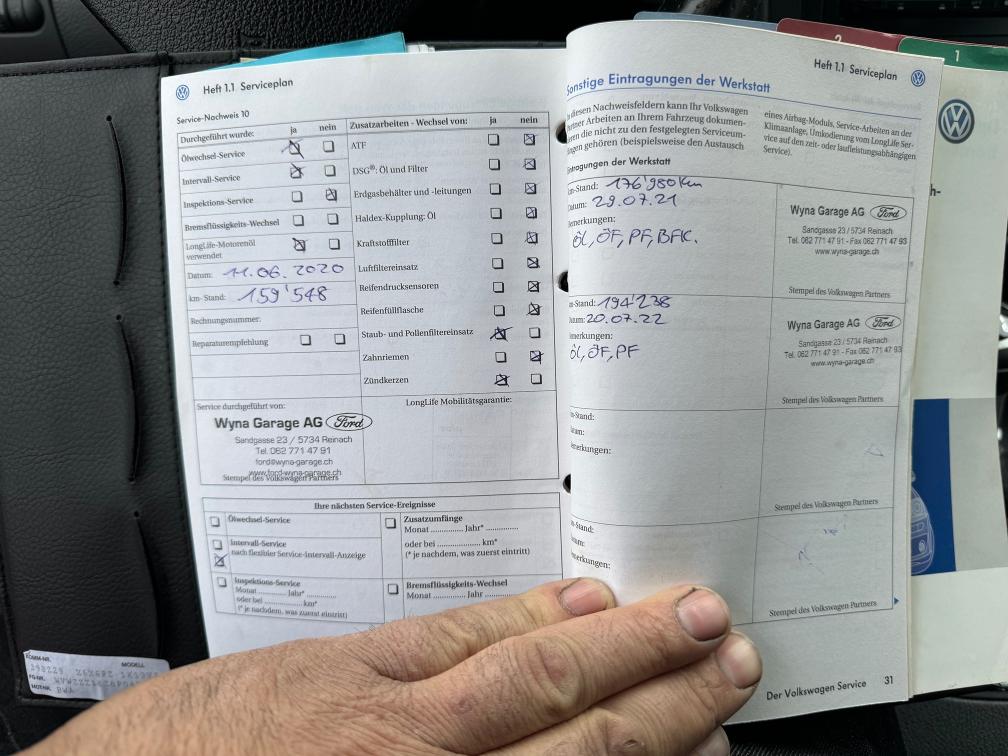 Heft 1.1 Serviceplan
Service-Nachweis 10
Durchgeführt wurde: ja nein
Ölwechsel-Service
Intervall-Service
Inspektions-Service
Bremsflüssigkeits-Wechsel
LongLife-Motorenöl
verwendet
Datum: 11.06.2020
km-Stand: 159'548
Rechnungsnummer:
Reparaturempfehlung
Zusatzarbeiten - Wechsel von: ja nein
ATF
DSG®: Öl und Filter
Erdgasbehälter und -leitungen
Haldex-Kupplung: Öl
Kraftstofffilter
Luftfiltereinsatz
Reifendrucksensoren
Reifenfüllflasche
Staub- und Pollenfiltereinsatz
Zahnriemen
Zündkerzen
Service durchgeführt von:
Wyna Garage AG Ford
Sandgasse 23 / 5734 Reinach
Tel. 062 771 47 91
ford@wyna-garage.ch
www.ford-wyna-garage.ch
Stempel des Volkswagen Partners
LongLife Mobilitätsgarantie:
Ihre nächsten Service-Ereignisse
Ölwechsel-Service
Intervall-Service
nach flexibler Service-Intervall-Anzeige
Inspektions-Service
Monat ............. Jahr* ..............
oder bei ................ km*
(* je nachdem, was zuerst eintritt)
Zusatzumfänge
Monat ............. Jahr* ..............
oder bei ................ km*
(* je nachdem, was zuerst eintritt)
Bremsflüssigkeits-Wechsel
Monat ............. Jahr ..............
MODELL
MOTNR. BWA
Heft 1.1 Serviceplan
Sonstige Eintragungen der Werkstatt
diesen Nachweisfeldern kann Ihr Volkswagen
Partner Arbeiten an Ihrem Fahrzeug dokumen-
die nicht zu den festgelegten Serviceum-
gehören (beispielsweise den Austausch
eines Airbag-Moduls, Service-Arbeiten an der
Klimaanlage, Umkodierung vom LongLife Ser-
vice auf den zeit- oder laufleistungsabhängigen
Service).
Eintragungen der Werkstatt
km-Stand: 176'980 km
Datum: 29.07.21
Bemerkungen:
Öl, ÖF, PF, BFK.
Wyna Garage AG Ford
Sandgasse 23 / 5734 Reinach
Tel. 062 771 47 91 - Fax 062 771 47 93
www.wyna-garage.ch
Stempel des Volkswagen Partners
km-Stand: 194'238
Datum: 20.07.22
Bemerkungen:
Öl, ÖF, PF
Wyna Garage AG Ford
Sandgasse 23 / 5734 Reinach
Tel. 062 771 47 91 - Fax 062 771 47 93
www.wyna-garage.ch
Stempel des Volkswagen Partners
km-Stand:
Datum:
Bemerkungen:
Stempel des Volkswagen Partners
km-Stand:
Datum:
Bemerkungen:
Stempel des Volkswagen Partners
Der Volkswagen Service 31
2
1